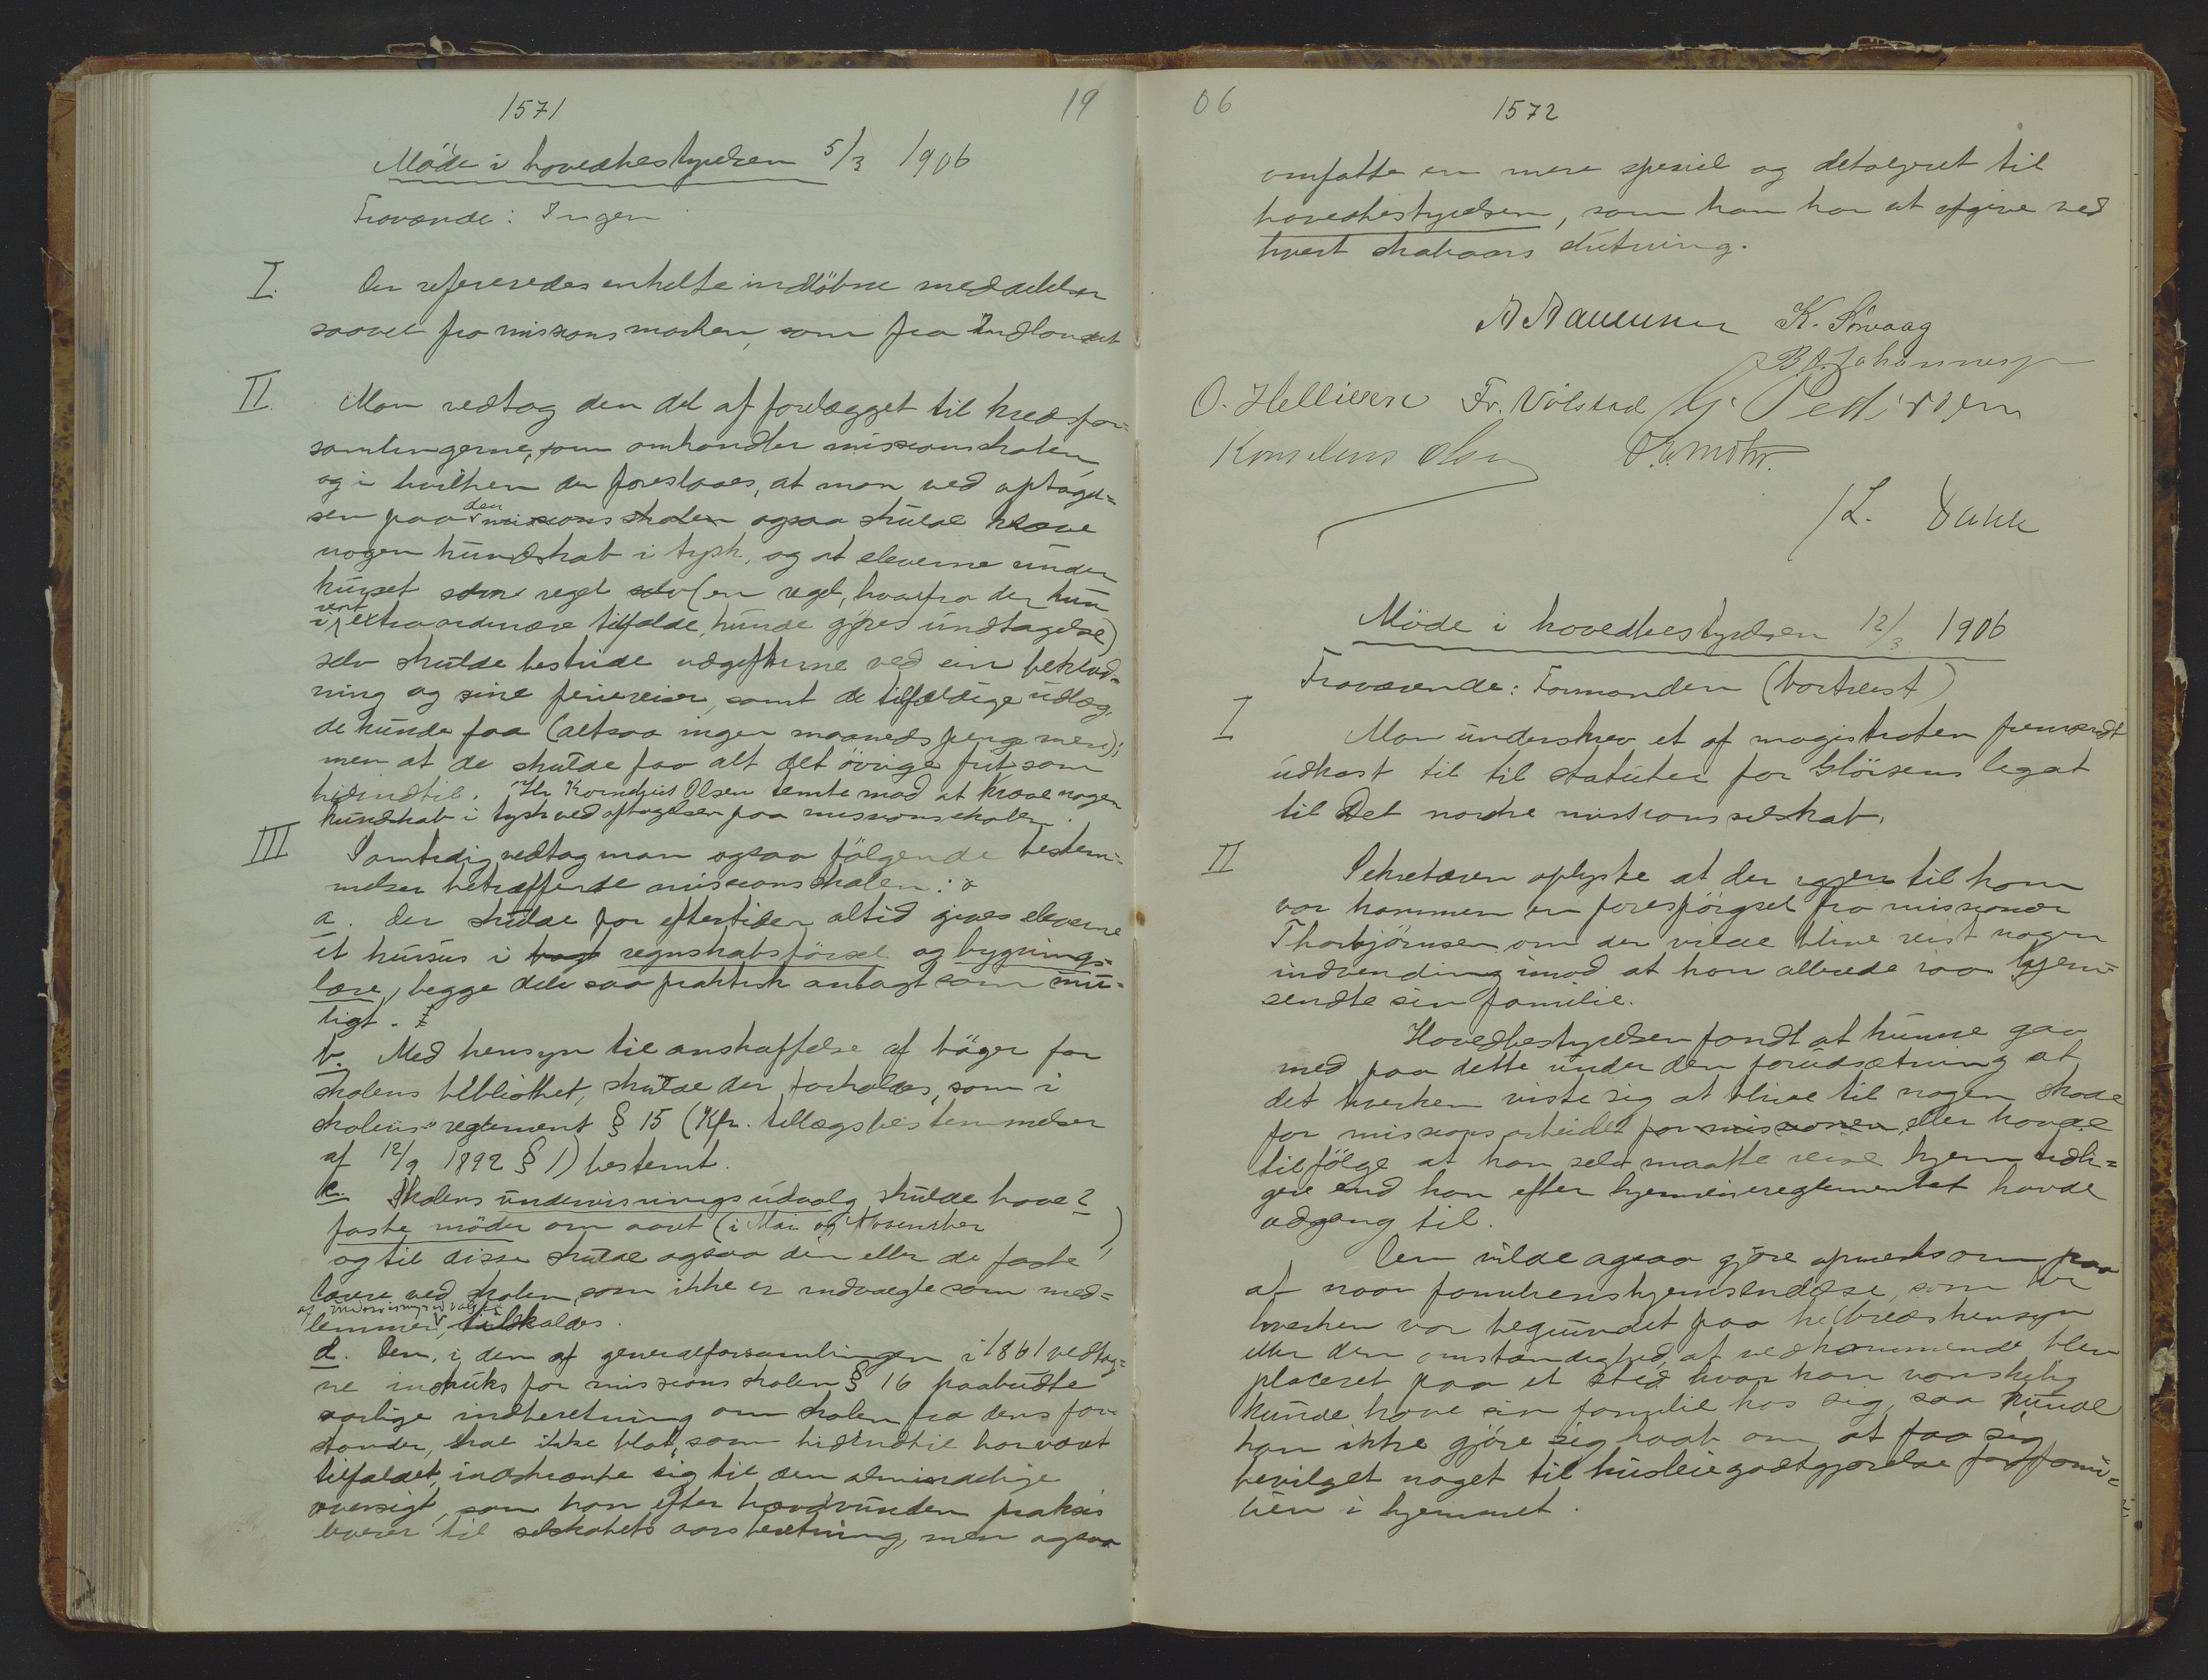 1571
19
Möde i hovedbestyrelsen 5/3 1906
Fraværende: Ingen
I. Der refereredes enkelte indlöbne meddelelser
saavel fra missionsmarken, som fra Indlandet
II. Man vedtog den del af forelægget til kredsfor=
samlingerne, som omhandler missionsskolen,
og i hvilken der foreslaaes, at man ved optagel=
sen paa den missionsskolen ogsaa skulde kræve
nogen kundskab i tysk, og at eleverne under
kurset som regel selv (en regel, hvorfra der kun
i rent extraordinære tilfælde, kunde gjøres undtagelse)
selv skulde bestride udgifterne ved sin beklæd=
ning og sine feriereiser, samt de tilfældige udlæg,
de kunde faa (altsaa ingen maanedspenge mere);
men at de skulde faa alt det övrige frit som
hidindtil. Hr Kornelius Olsen stemte mod at kræve nogen
kundskab i tysk ved optagelsen paa missionsskolen.
III Samtidig vedtog man ogsaa fölgende bestem=
melser betræffende missionsskolen:
a. Der skulde for eftertiden altid gives eleverne
et kursus i regnskabsförsel og bygnings=
lære, begge dele saa praktisk anlagt som mu=
ligt.
b. Med hensyn til anskaffelse af böger for
skolens bibliothek, skulde der forholdes, som i
skolens reglement § 15 (Kfr. tillægsbestemmelser
af 12/9 1892 § 1) bestemt.
c. Skolens undervisningsudvalg skulde have 2
faste möder om aaret (i Mai og November),
og til disse skulde ogsaa den eller de faste
lærere ved skolen, som ikke er indvalgte som med=
af undervisningsudvalget
lemmer, tilkaldes.
d. Den, i den af generalforsamlingen i 1861 vedtag=
ne instruks for missionsskolen § 16 paabudte
aarlige indberetning om skolen fra dens for=
stander, skal ikke blot, som hidindtil har været
tilfældet, indskrænke sig til den almindelige
oversigt, som han efter hævdvunden praksis
leverer til selskabets aarsberetning, men ogsaa
06
1572
omfatte en mere speciel og detaljeret til
hovedbestyrelsen, som han har at afgive ved
hvert skoleaars slutning.
K. Sørvaag
B. A. Johannesen
O. Hellisen Fr. Vølstad G. Pedersen
Kornelius Olsen
L. Dahle
Möde i hovedbestyrelsen 12/3 1906
Fraværende: Formanden (bortreist)
I Man underskrev et af magistraten fremsendt
udkast til til statuter for legat
til Det norske missionsselskab.
II Sekretæren oplyste at der igjen til ham
var kommen en forespörgsel fra missionær
Thorbjörnsen om der vilde blive reist nogen
indvending imod at han allerede iaar hjem=
sendte sin familie.
Hovedbestyrelsen fandt at kunne gaa
med paa dette under den forudsætning at
det hverken viste sig at blive til nogen skade
for missionsarbeidet for missionen, eller havde
tilfölge at han selv maatte reise hjem tidli=
gere end han efter hjemreisereglementet havde
adgang til.
Den vilde ogsaa gjöre opmerksom paa
at naar familiens hjemsendelse, som her
hverken var begrundet paa helbredshensyn
eller den omstændighed, at vedkommende blev
placeret paa et sted hvor han vanskelig
kunde have sin familie hos sig, saa kunde
han ikke gjöre sig haab om at faa sig
bevilget noget til husleiegodtgjørelse for fami=
lien i hjemmet.